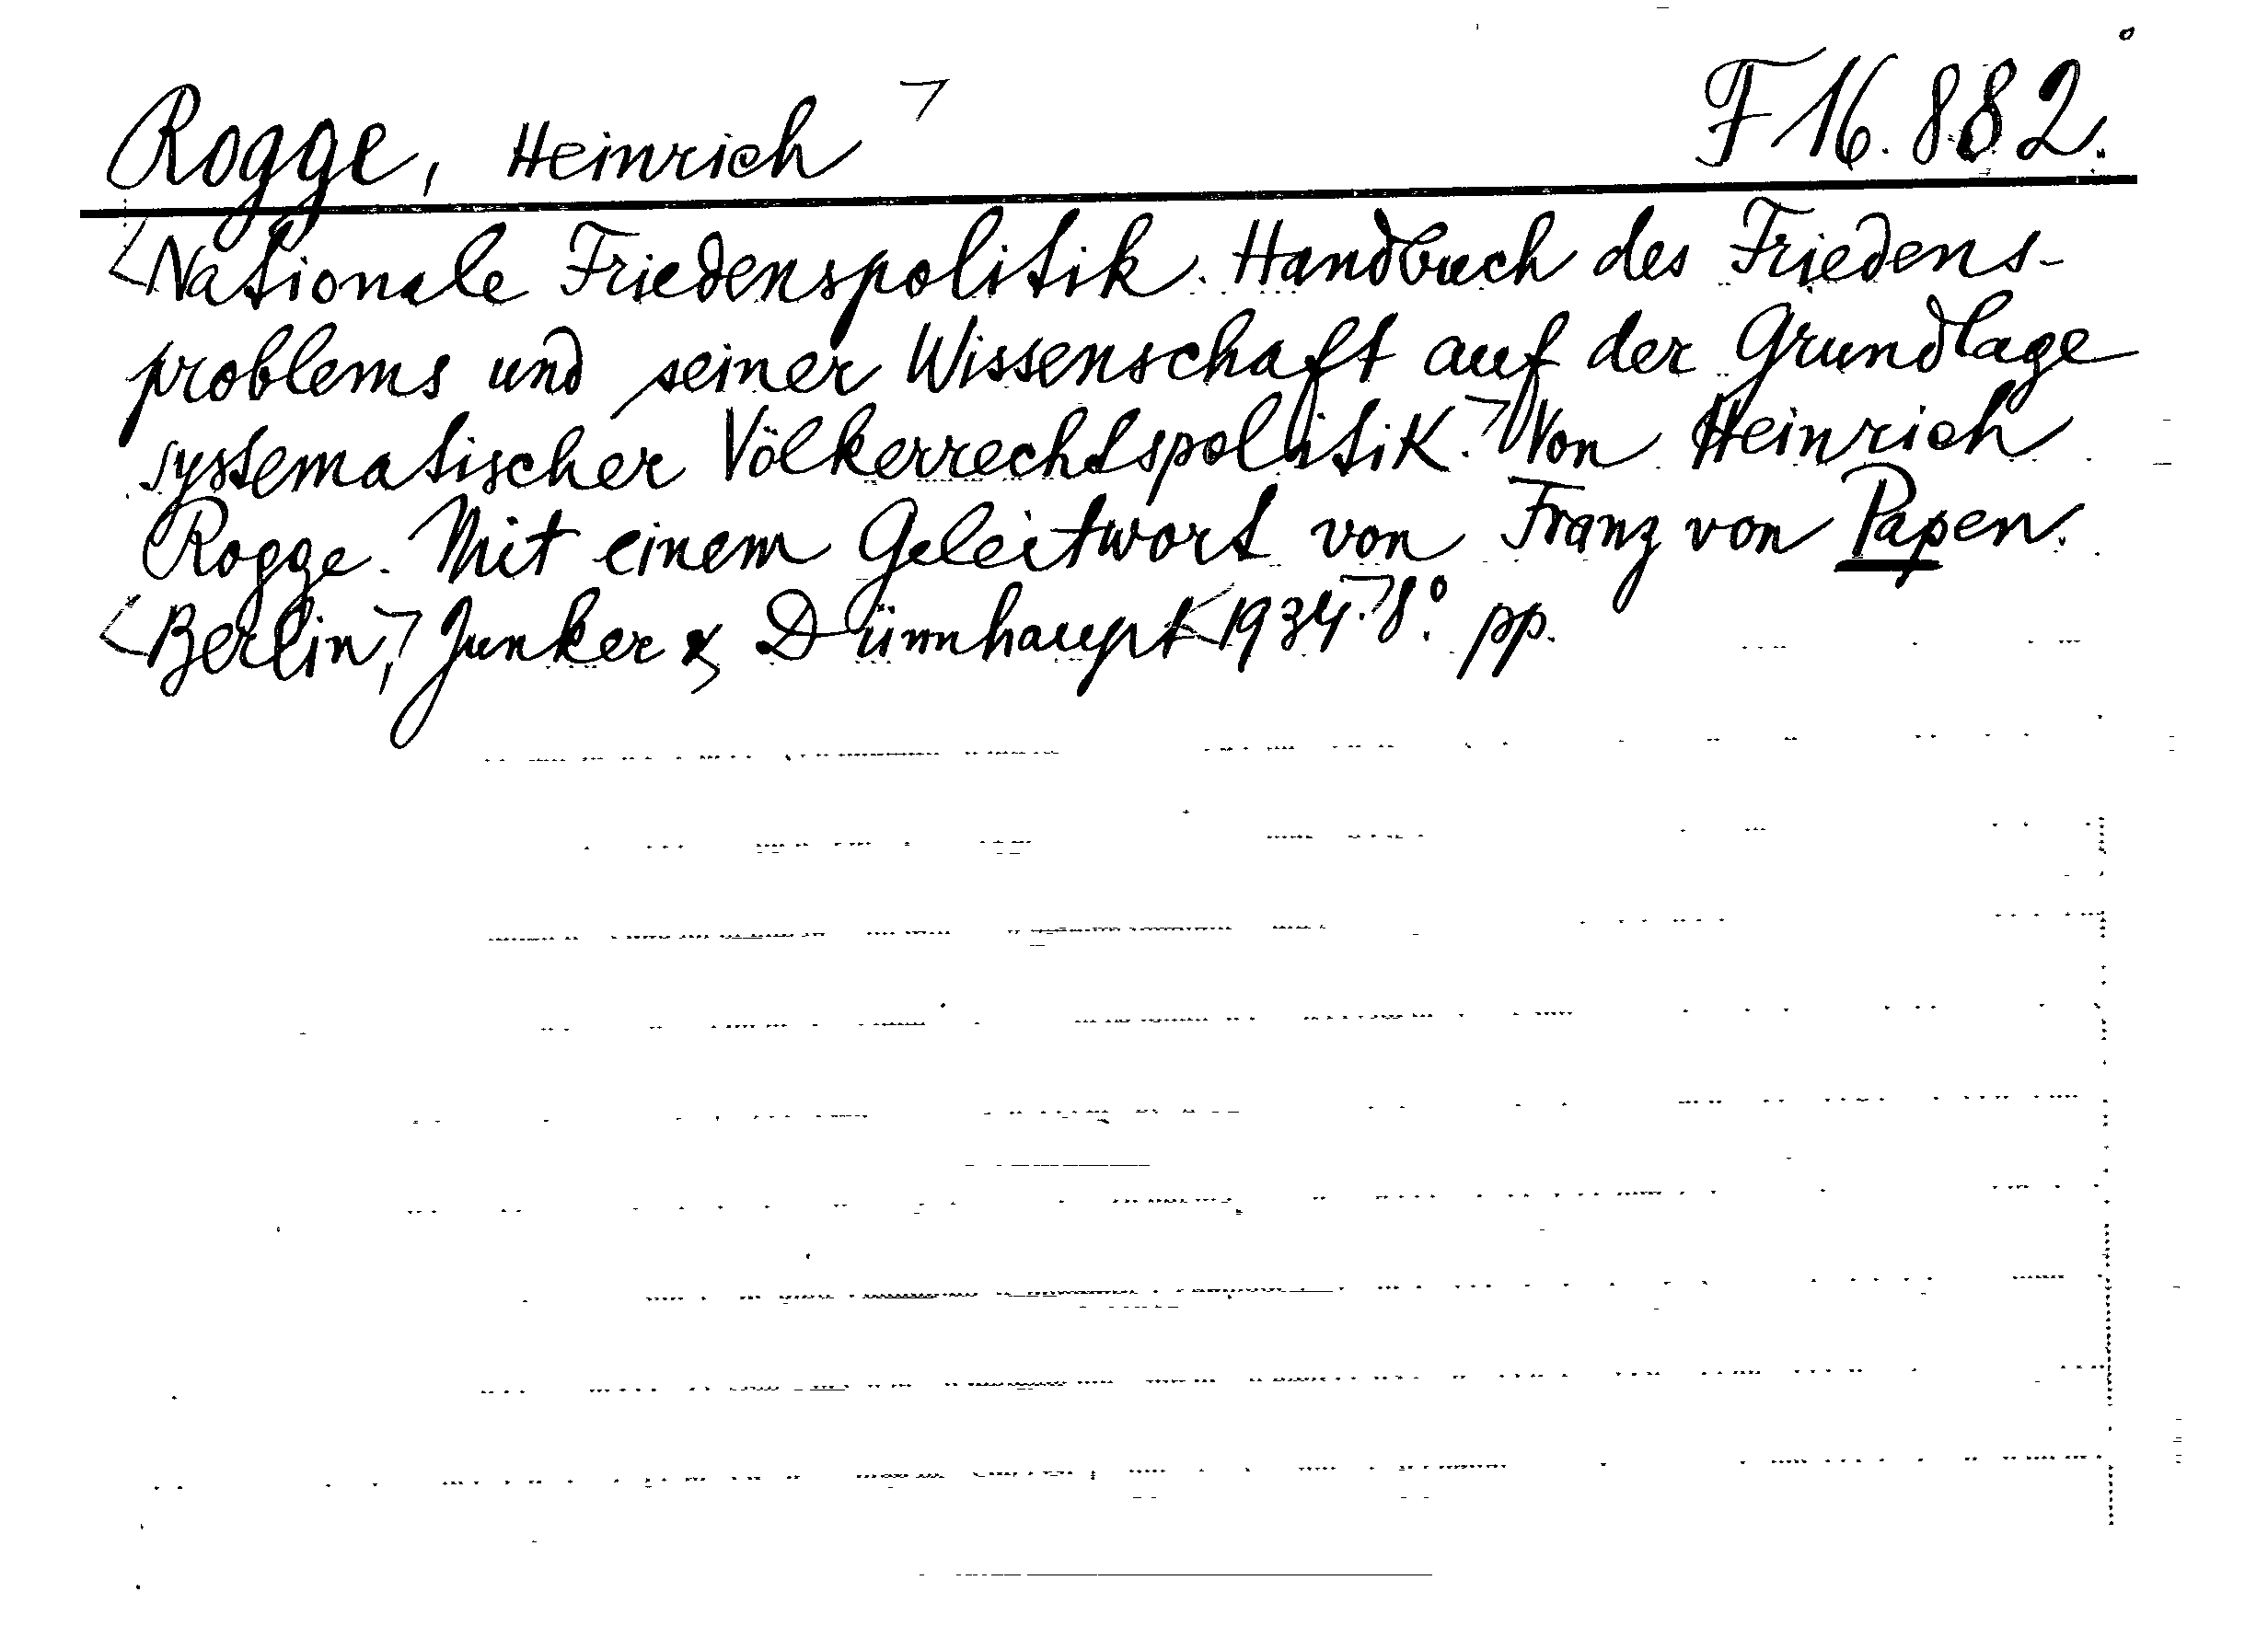 Rogge, Heinrich F 16.882.
Nationale Friedenspolitik. Handbuch des Friedens-
problems und seiner Wissenschaft auf der Grundlage
systematischer Völkerrechtspolitik. Von Heinrich
Rogge. Mit einem Geleitwort von Franz von Papen.
Berlin, Junker & Dünnhaupt 1934. 8°. pp.